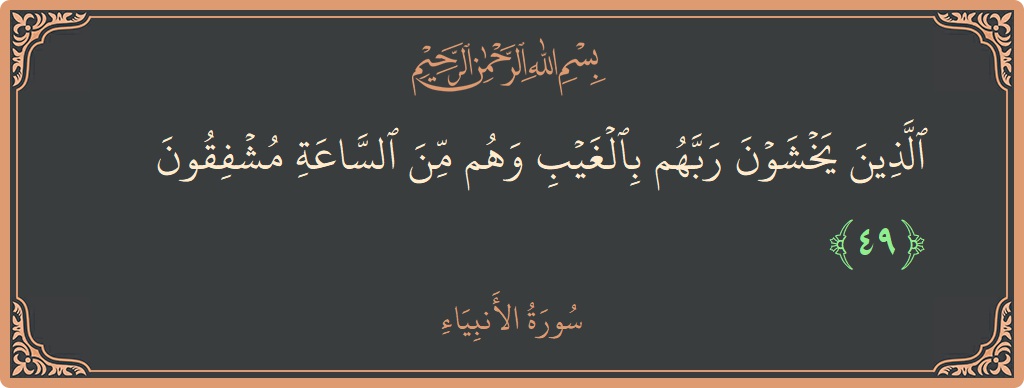 بِسْمِ اللهِ الرَّحْمٰنِ الرَّحِيْمِ
ٱلَّذِينَ يَخْشَوْنَ رَبَّهُم بِٱلْغَيْبِ وَهُم مِّنَ ٱلسَّاعَةِ مُشْفِقُونَ
﴿٤٩﴾
سُورَةُ الأَنبِيَاءِ